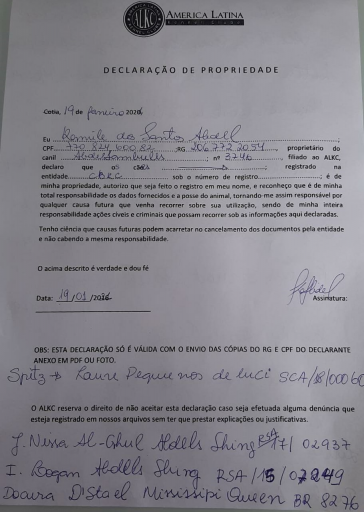 ALKC
AMERICA LATINA
KENNEL CLUB
DECLARAÇÃO DE PROPRIEDADE
Cotia, 19 de Janeiro 2026
Eu Romile dos Santos Abdell
CPF 770 824 600 82 RG 206 772 2054, proprietário do
canil; nº 3746, filiado ao ALKC,
declaro que os cães registrado na
entidade CBKC sob o número de registro; é de
minha propriedade, autorizo que seja feito o registro em meu nome, e reconheço que é de minha
total responsabilidade os dados fornecidos e a posse do animal, tornando-me assim responsável por
qualquer causa futura que venha recorrer sobre sua utilização, sendo de minha inteira
responsabilidade ações civeis e criminais que possam recorrer sob as informações aqui declaradas.
Tenho ciência que causas futuras podem acarretar no cancelamento dos documentos pela entidade
e não cabendo a mesma responsabilidade.
O acima descrito é verdade e dou fé
Data: 19/01/2026
Assinatura:
OBS: ESTA DECLARAÇÃO SÓ É VÁLIDA COM O ENVIO DAS CÓPIAS DO RG E CPF DO DECLARANTE
ANEXO EM PDF OU FOTO.
Spitz → Laure Pequenos de luci SCA/18/00060
O ALKC reserva o direito de não aceitar esta declaração caso seja efetuada alguma denúncia que
esteja registrado em nossos arquivos sem ter que prestar explicações ou justificativas.
J. Nissa Al-Ghul Abdells Shing RSA/17/02937
I. Bogan Abdells Shing RSA/15/07249
Doaura D'Stael Mississipi Queen BR 8276